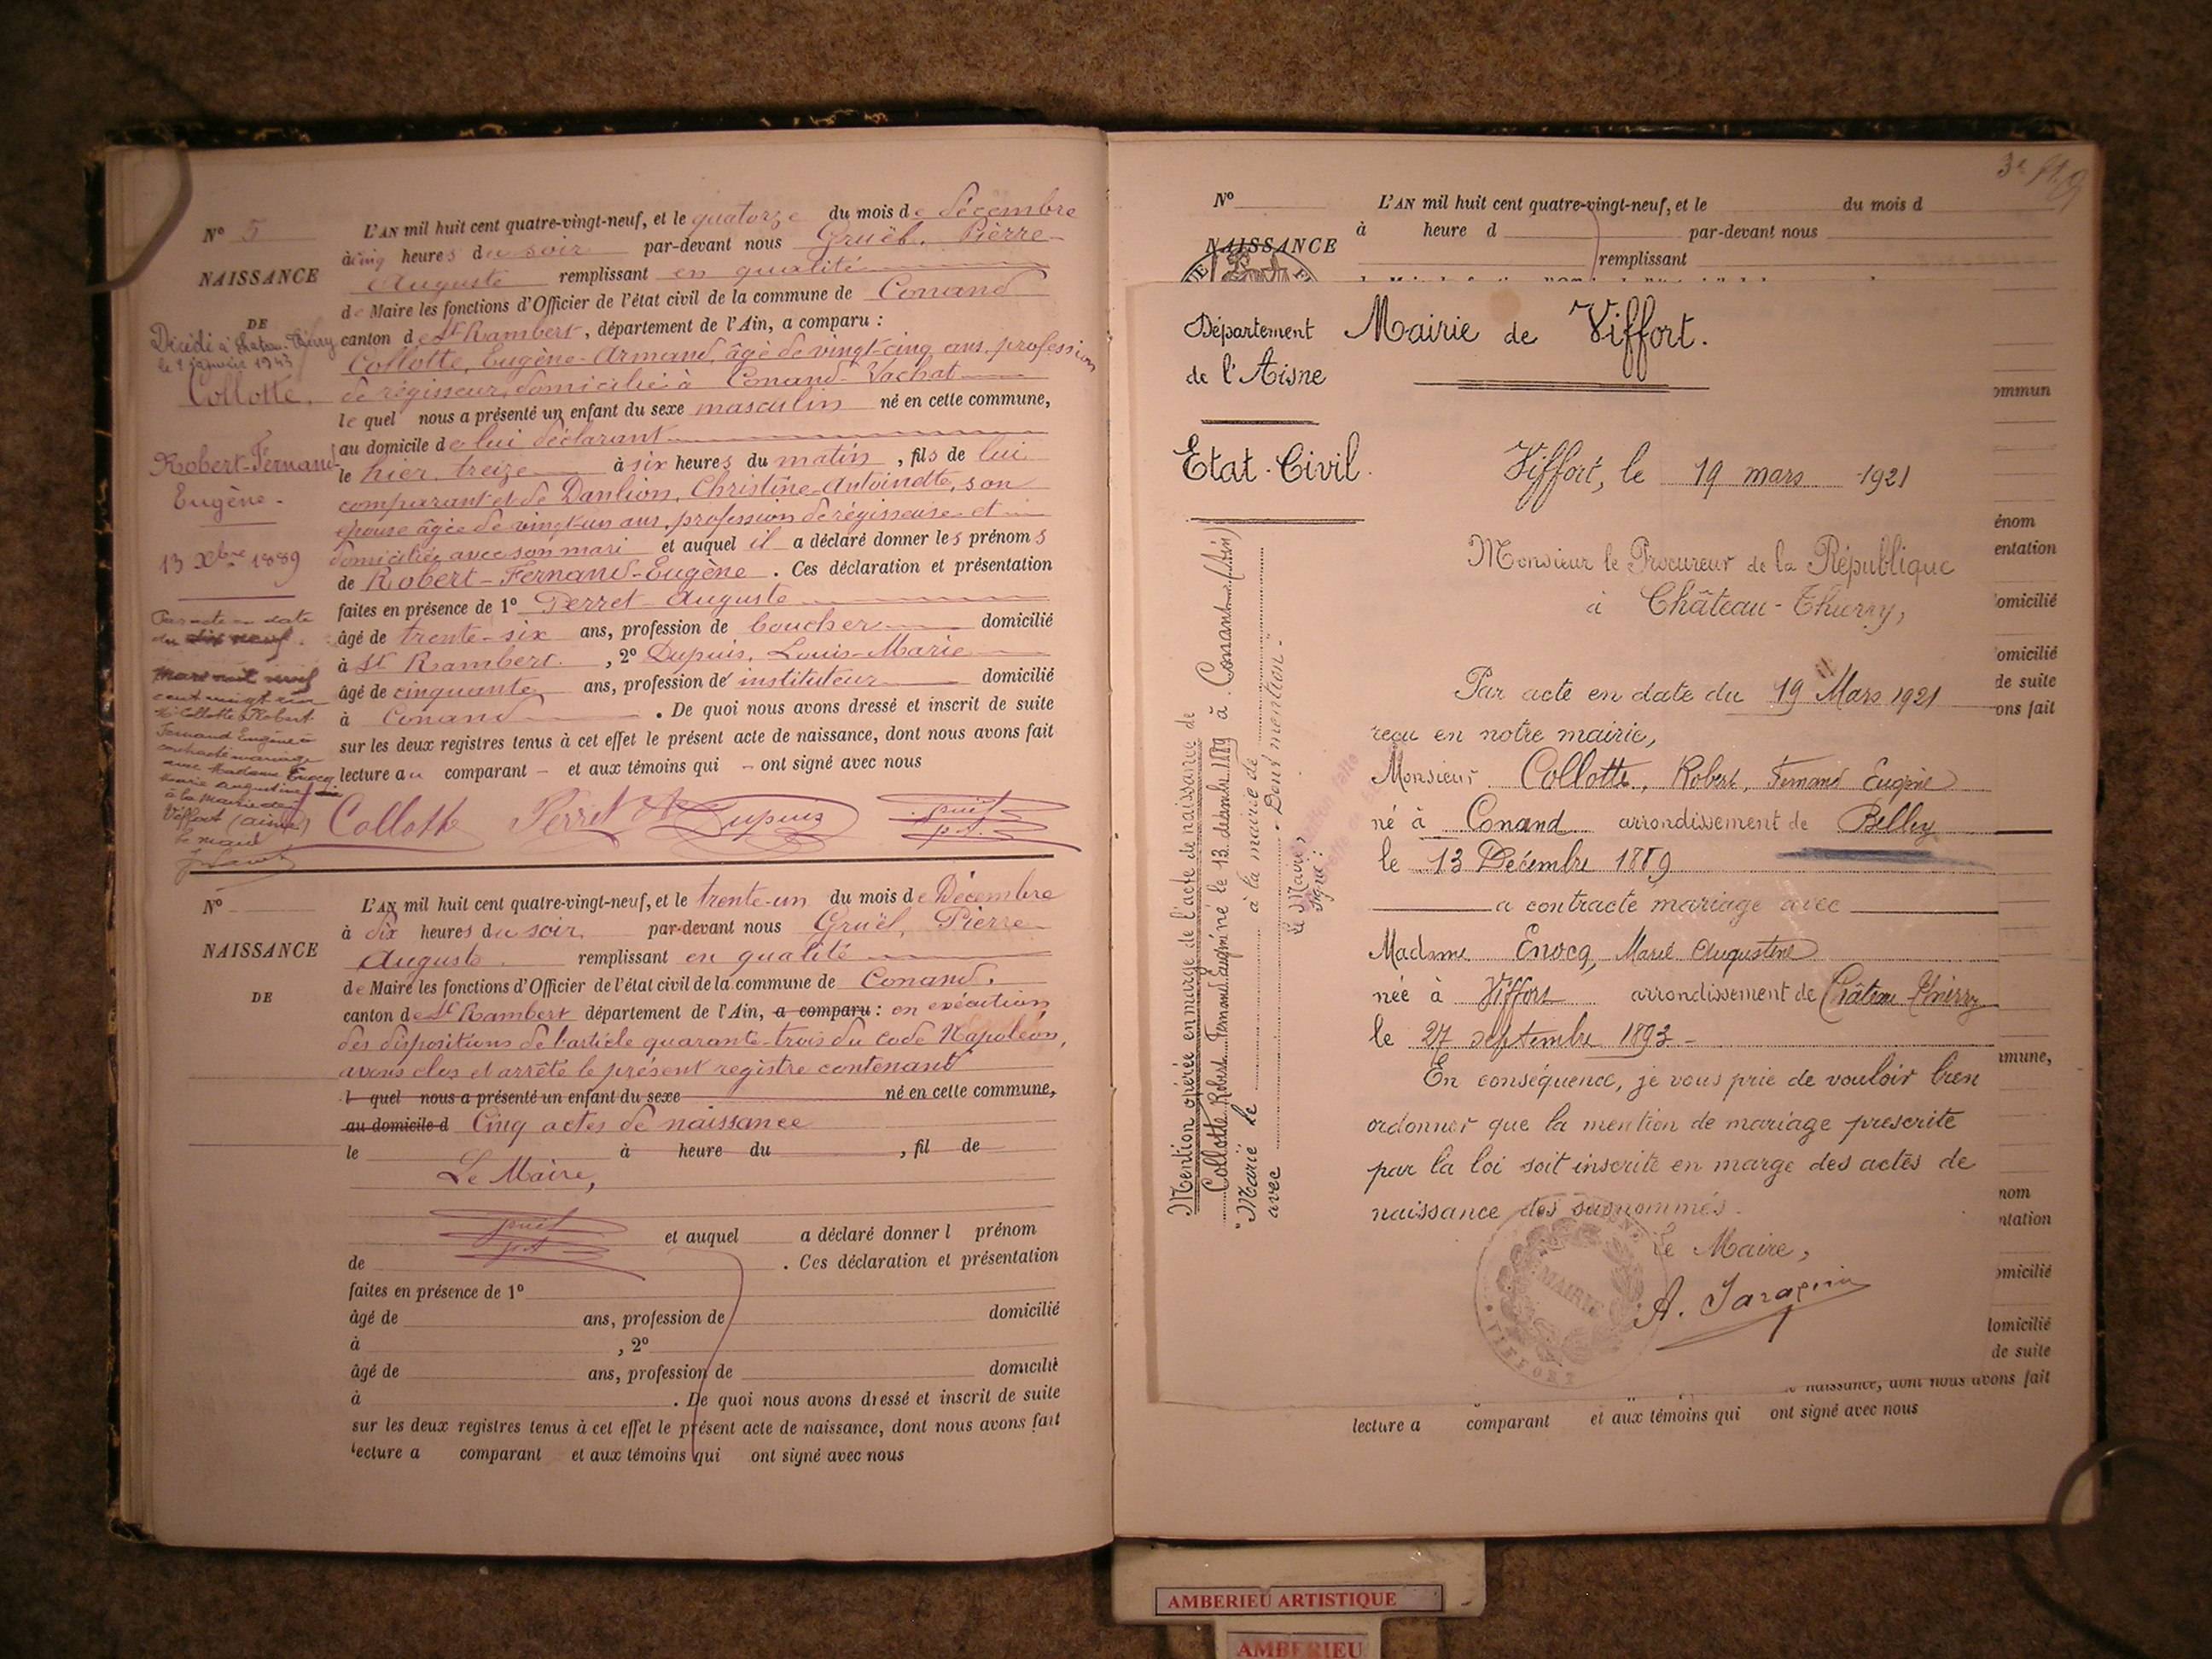 N° 5
NAISSANCE
DE
Décédé à Chateau-Thierry
le 1 janvier 1943
Collotte,
Robert-Fernand-
Eugène.
13 Xbre 1889
Par acte en date
du dix neuf
mars mil neuf
cent vingt un
Mr Collotte Robert
Fernand Eugène a
contracté mariage
avec Madame Enocq
Marie Augustine
à la mairie de
Viffort (Aisne)
L'AN mil huit cent quatre-vingt-neuf, et le quatorze du mois de décembre
à cinq heures du soir par-devant nous Gruël, Pierre
Auguste remplissant en qualité
de Maire les fonctions d'Officier de l'état civil de la commune de Conand
canton de St Rambert, département de l'Ain, a comparu :
Collotte, Eugène-Armand, âgé de vingt-cinq ans, profession
de régisseur, domicilié à Conand-Vachat
le quel nous a présenté un enfant du sexe masculin né en cette commune,
au domicile de lui déclarant
le hier, treize à six heures du matin, fils de lui
comparant et de Danlion, Christine-Antoinette, son
épouse âgée de vingt-un ans, profession de régisseuse et
domiciliée avec son mari et auquel il a déclaré donner les prénoms
de Robert-Fernand-Eugène. Ces déclaration et présentation
faites en présence de 1° Perret Auguste
âgé de trente-six ans, profession de boucher domicilié
à St Rambert, 2° Dupuis, Louis-Marie
âgé de cinquante ans, profession de instituteur domicilié
à Conand. De quoi nous avons dressé et inscrit de suite
sur les deux registres tenus à cet effet le présent acte de naissance, dont nous avons fait
lecture au comparant - et aux témoins qui - ont signé avec nous
Collotte Perret A Dupuis
N°
NAISSANCE
DE
L'AN mil huit cent quatre-vingt-neuf, et le trente-un du mois de Décembre
à dix heures du soir, par-devant nous Gruël, Pierre
Auguste remplissant en qualité
de Maire les fonctions d'Officier de l'état civil de la commune de Conand.
canton de St Rambert département de l'Ain, a comparu : en exécution
des dispositions de l'article quarante-trois du code Napoléon,
avons clos et arrêté le présent registre contenant
l quel nous a présenté un enfant du sexe né en cette commune,
au domicile d Cinq actes de naissance
le à heure du , fil de
Le Maire,
et auquel a déclaré donner l prénom
de . Ces déclaration et présentation
faites en présence de 1°
âgé de ans, profession de domicilié
à , 2°
âgé de ans, profession de domicilié
à . De quoi nous avons dressé et inscrit de suite
sur les deux registres tenus à cet effet le présent acte de naissance, dont nous avons fait
lecture a comparant et aux témoins qui ont signé avec nous
N°
NAISSANCE
L'AN mil huit cent quatre-vingt-neuf, et le du mois d
à heure d par-devant nous
remplissant
Département
de l'Aisne
Mairie de Viffort.
Etat-Civil.
Viffort, le 19 mars 1921
Monsieur le Procureur de la République
à Château-Thierry,
Par acte en date du 19 Mars 1921
reçu en notre mairie,
Monsieur Collotte, Robert, Fernand Eugène
né à Conand arrondissement de Belley
le 13 Décembre 1889
a contracté mariage avec
Madame Enocq, Marie Augustine
née à Viffort arrondissement de Château Thierry
le 27 septembre 1893
En conséquence, je vous prie de vouloir bien
ordonner que la mention de mariage prescrite
par la loi soit inscrite en marge des actes de
naissance des susnommés.
Le Maire,
MAIRIE
VIFFORT
Mention opérée en marge de l'acte de naissance de
Collotte Robert Fernand Eugène né le 13 décembre 1889 à Conand
"Marié le à la mairie de
avec . Dont mention."
Le Maire,
Signé :
ommun
énom
entation
omicilié
omicilié
de suite
ons fait
mmune,
nom
ntation
omicilié
lomicilié
de suite
naissance, dont nous avons fait
lecture a comparant et aux témoins qui ont signé avec nous
AMBERIEU ARTISTIQUE
AMBERIEU